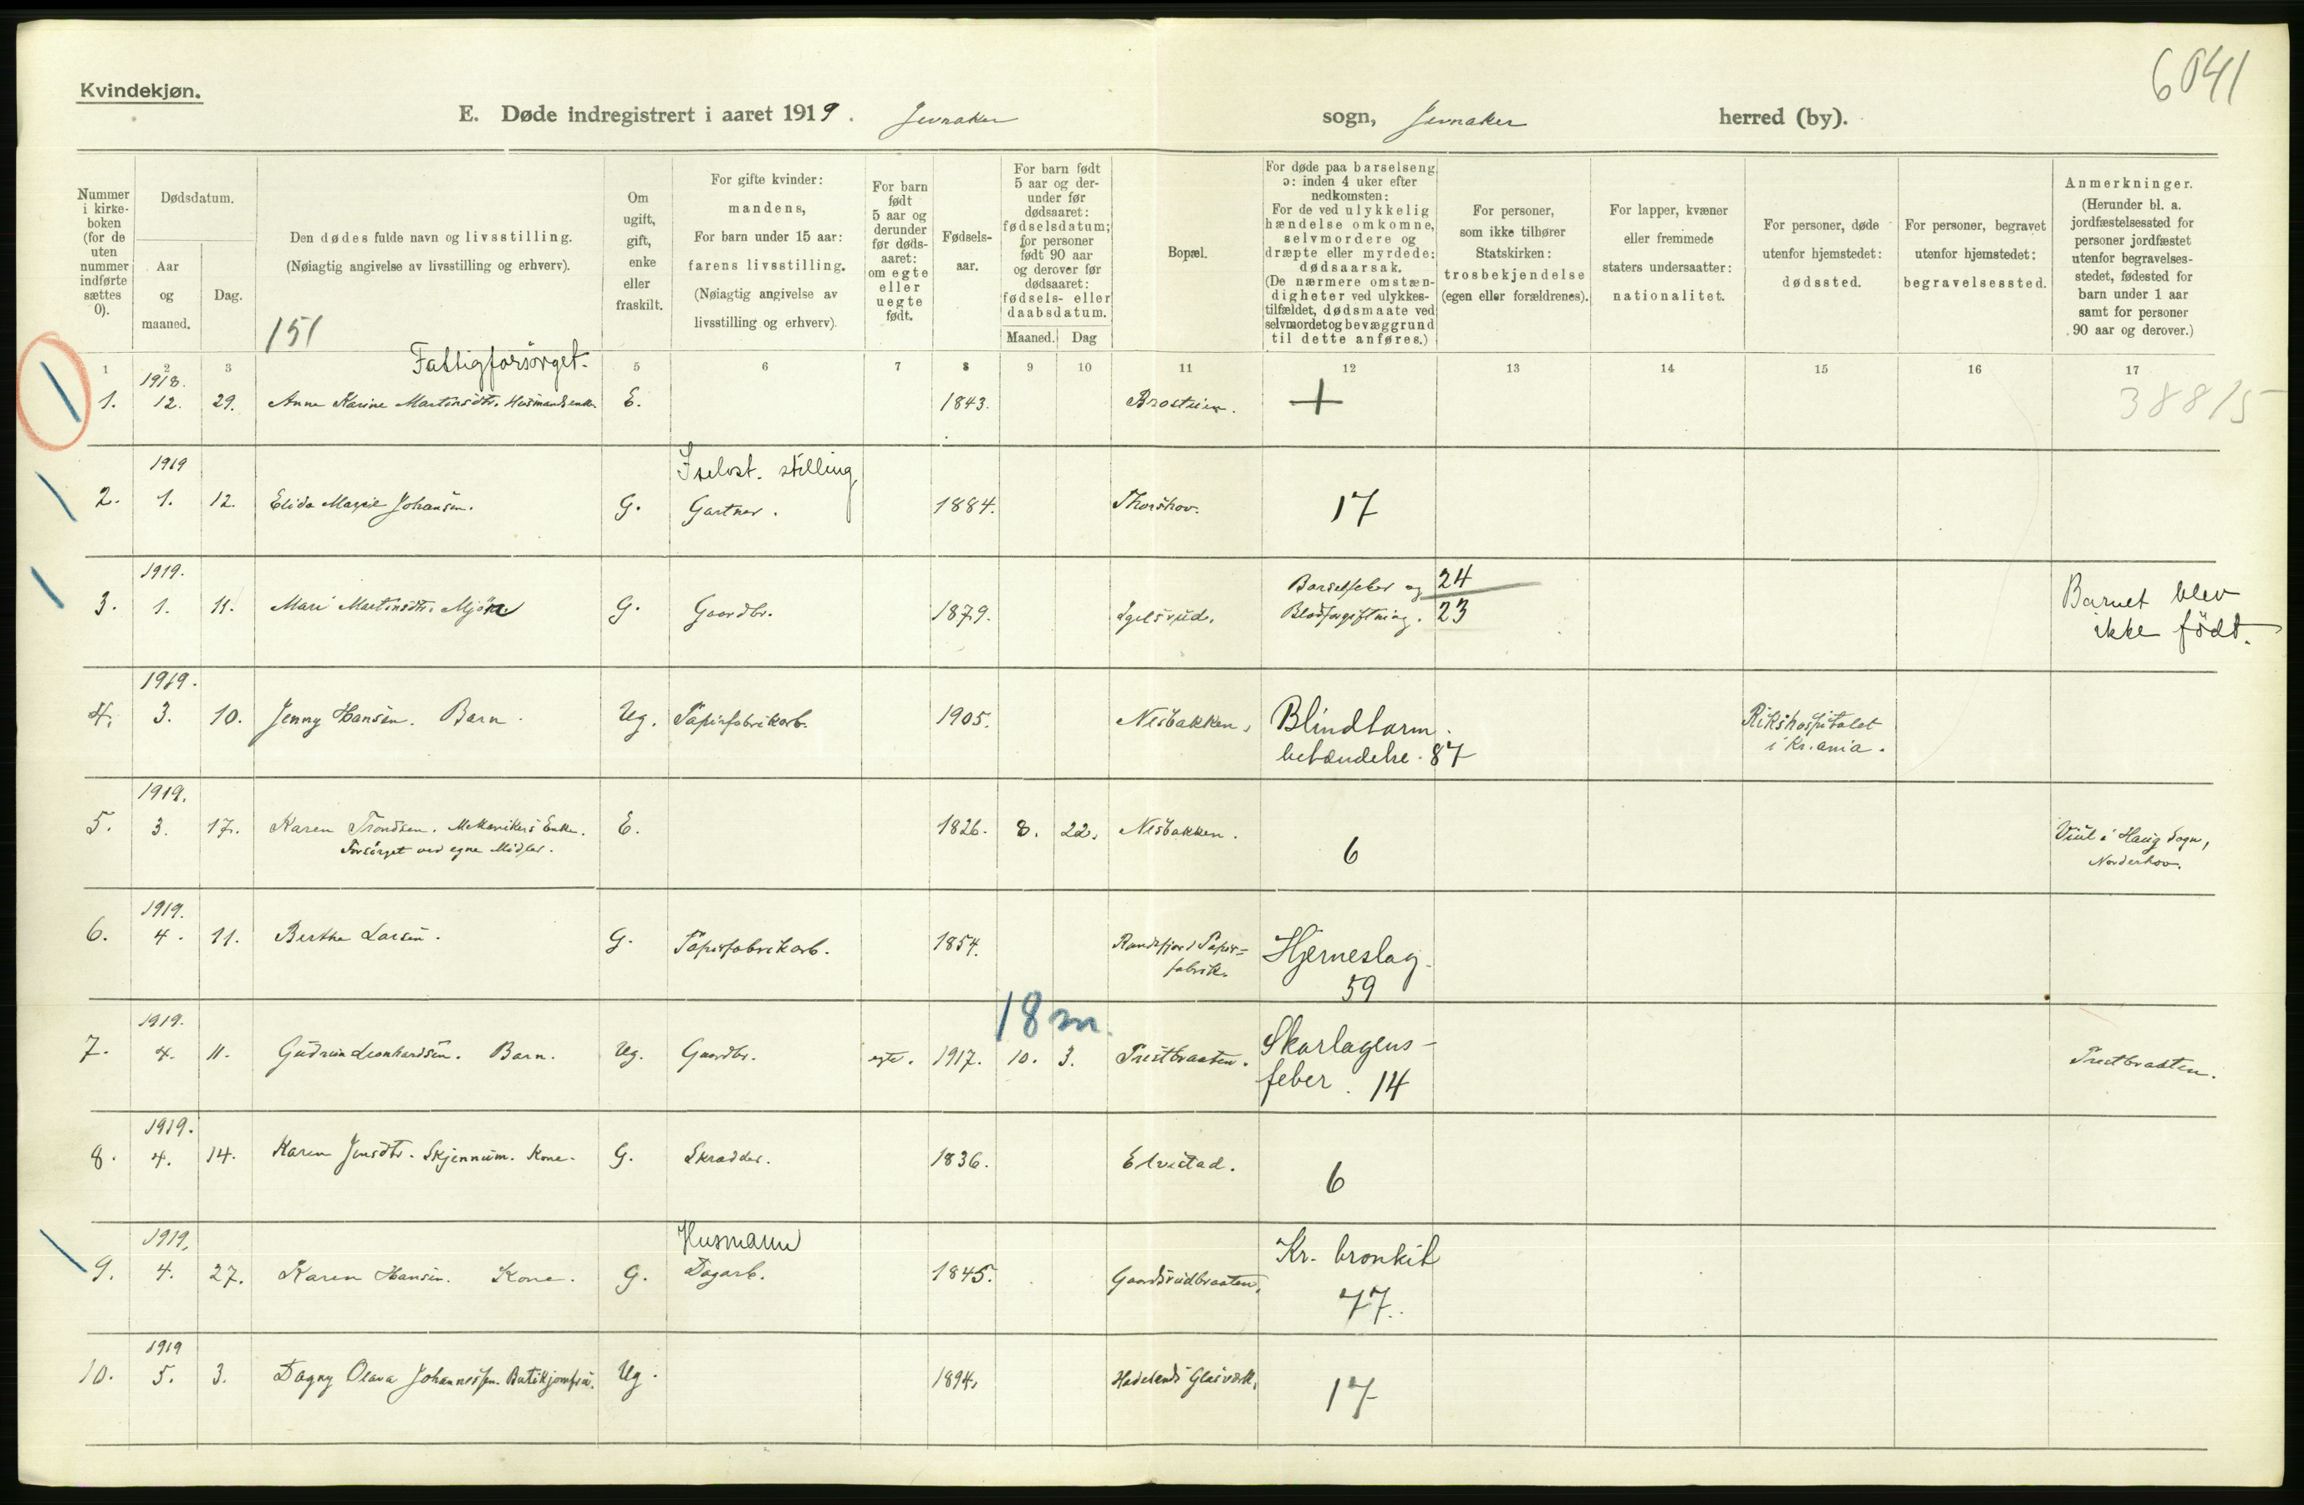 6041
Kvindekjøn.
E. Døde indregistrert i aaret 1919. Jevnaker sogn, Jevnaker herred (by).
Nummer i kirkeboken (for de uten nummer indførte sættes 0).
Dødsdatum.
Aar og maaned.
Dag.
Den dødes fulde navn og livsstilling.
(Nøiagtig angivelse av livsstilling og erhverv).
151
Om ugift, gift, enke eller fraskilt.
For gifte kvinder: mandens,
For barn under 15 aar: farens livsstilling.
(Nøiagtig angivelse av livsstilling og erhverv).
For barn født 5 aar og derunder før dødsaaret: om egte eller uegte født.
Fødselsaar.
For barn født 5 aar og derunder før dødsaaret: fødselsdatum; for personer født 90 aar og derover før dødsaaret: fødsels- eller daabsdatum.
Maaned. Dag
Bopæl.
For døde paa barselseng ɔ: inden 4 uker efter nedkomsten:
For de ved ulykkelig hændelse omkomne, selvmordere og dræpte eller myrdede: dødsaarsak.
(De nærmere omstændigheter ved ulykkestilfældet, dødsmaate ved selvmordet og bevæggrund til dette anføres.)
For personer, som ikke tilhører Statskirken: trosbekjendelse (egen eller forældrenes).
For lapper, kvæner eller fremmede staters undersaatter: nationalitet.
For personer, døde utenfor hjemstedet: dødssted.
For personer, begravet utenfor hjemstedet: begravelsessted.
Anmerkninger.
(Herunder bl. a. jordfæstelsessted for personer jordfæstet utenfor begravelsesstedet, fødested for barn under 1 aar samt for personer 90 aar og derover.)
1 2 3 5 6 7 8 9 10 11 12 13 14 15 16 17
1
Fattigforsørget.
1918.
1. 12. 29. Anne Karine Martinsdtr. Husmandsenke. E. 1843. + 38815
1919 Selvst. stilling
2. 1. 12. Elida Marie Johansen. G. Gartner. 1884. Thorshov. 17
1919. Barselfeber og 24 Barnet blev
3. 1. 13. Mari Martinsdtr. Mjør G. Gaardbr. 1879. Igelsrud. Blodforgiftning. 23 ikke født.
1919.
4. 3. 10. Jenny Hansen. Barn. Ug. Papirfabrikarb. 1905. Nesbakken. Blindtarm. Rikshospitalet
betændelse. 87 i Kr.ania.
1919.
5. 3. 17. Karen Trondsen. Mekanikers Enke. E. 1826. 8. 22. Nesbakken. 6 Viul i Haug Sogn,
Forsørget ved egne Midler. Norderhov.
1919.
6. 4. 11. Berthe Larsen. G. Papirfabrikarb. 1854. Randsfjord Papir=
fabrik. Hjerneslag.
59
18 m.
1919.
7. 4. 11. Gudrun Leonhardsen. Barn. Ug. Gaardbr. egte. 1917. 10. 3. Prestbraaten. Skarlagens-
feber. 14 Prestbraaten.
1919.
8. 4. 14. Karen Jensdtr. Skjennum. Kone. G. Skrædder. 1836. Elvestad. 6
1919. Husmann
9. 4. 27. Karen Hansen. Kone. G. Dagarb. 1845. Gaardsrudbraaten. Kr. bronkit
77.
1919
10. 5. 3. Dagny Olava Johannessen. Butikjomfru. Ug. 1894. Hadelands Glasværk. 17